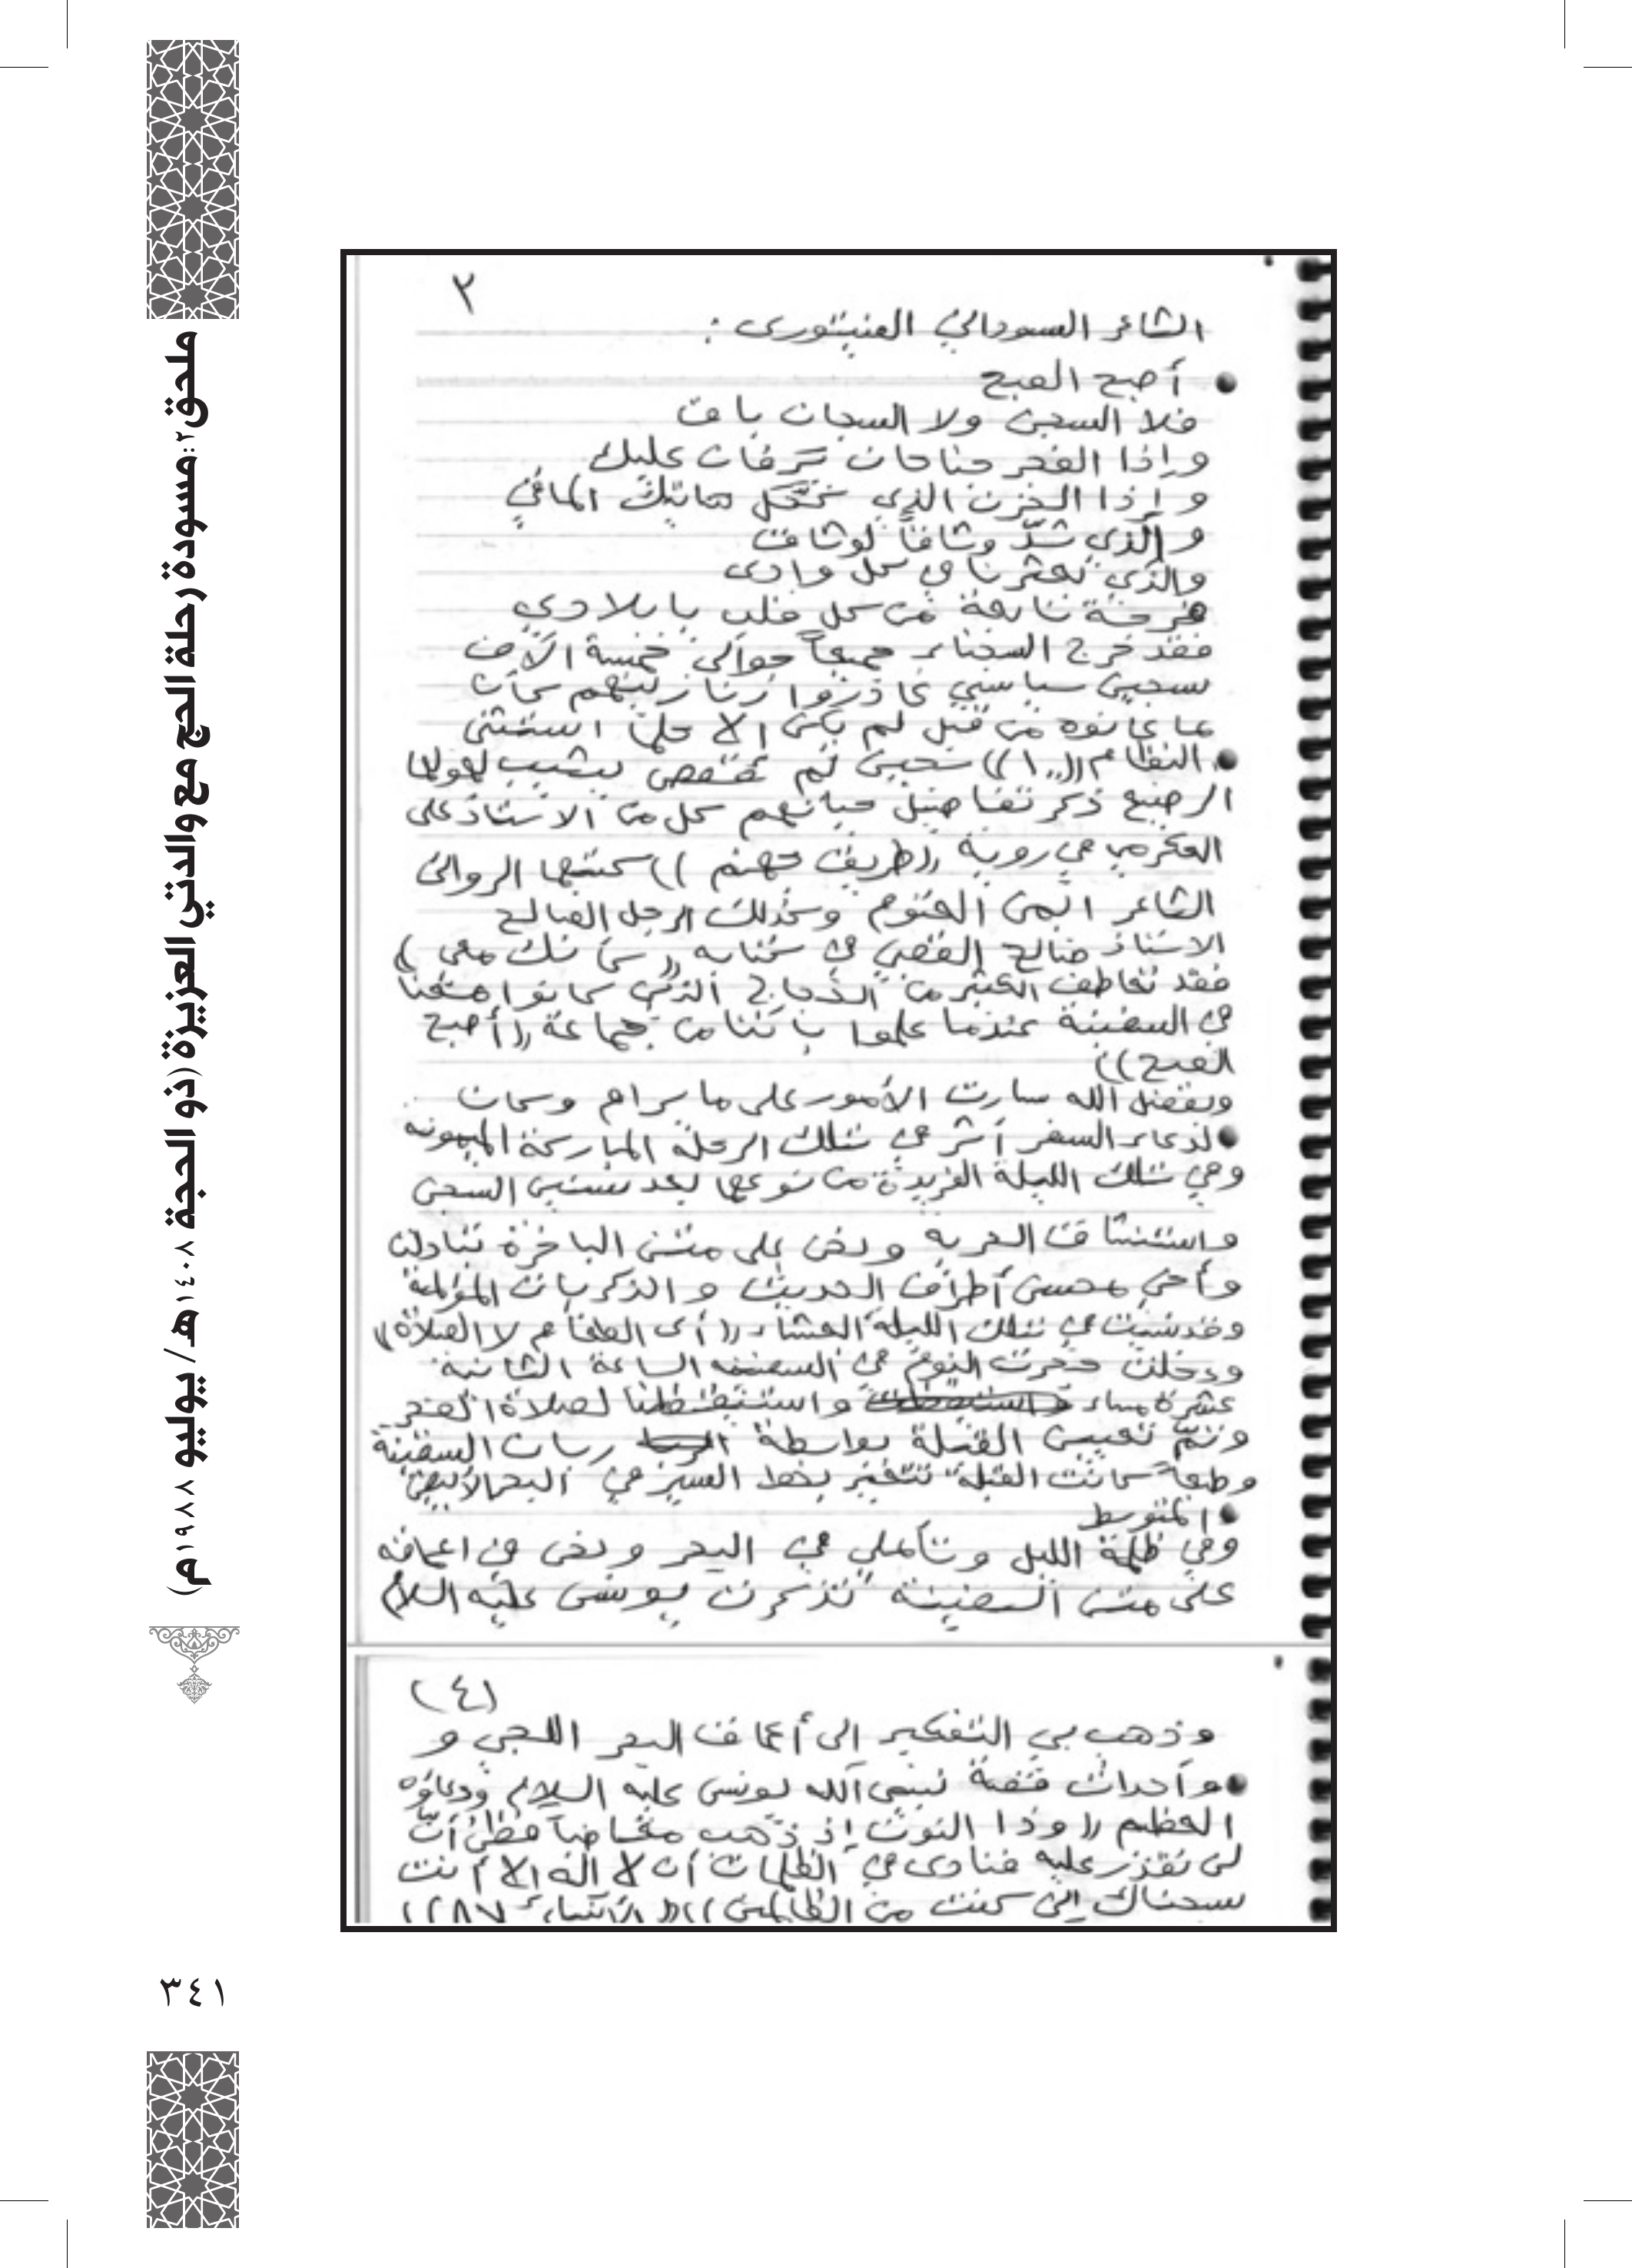 ملحق٢: مسودة رحلة الحج مع والدتي العزيزة (ذو الحجة ١٤٠٧ هـ / يوليو ١٩٨٧م)
٣
الشاعر السوداني الفيتوري :
أصبح الصبح
فلا السجن ولا السجان باق
وإذا الفجر جناحان يرفان عليك
وإذا الحزن الذي كحّل هاتيك المآقي
والذي شدّ وثاقاً لوثاق
والذي بعثرنا في كل وادى
فرحة نابعة من كل قلب يا بلادي
فقد خرج السجناء جميعاً حوالي خمسة آلاف
سجين سياسي غادروا زنازينهم كأن
ما عانوه من قبل لم يكن إلا حلماً استثنى
النظام ((١٠٠)) سجين لم
الرضيع ذكر تفاصيل حياتهم كل من الاستاذ على
العكرمي في روية ((طريق جهنم)) كتبها الروائى
الشاعر ايمن العتوم وكذلك الرجل الصالح
الاستاذ صالح القصبي في كتابه ((كأنك معى))
فقد تعاطف الكثير من الحجاج الذين كانوا معنا
في السفينة عندما علموا بأننا من جماعة ((أصبح
الصبح))
وبفضل الله سارت الأمور على ما يرام وكان
لدعاء السفر أثر في تلك الرحلة المباركة الميمونه
وفي تلك الليلة الفريدة من نوعها بعد سنين السجن
واستنشاق الحريه ونحن على متن الباخرة تبادلت
وأخي محسن أطراف الحديث والذكريات المؤلمة
وقد نسيت في تلك الليلة العشاء ((أى الطعام لا الصلاة))
ودخلت حجرت النوم في السفينه الساعة الثانية
عشرة مساء واستيقظنا لصلاة الفجر
وتمّ تعيين القبلة بواسطة ربان السفينة
وطبعاً كانت القبلة تتغير بخط السير في البحر الأبيض
المتوسط
وفي ظلمة الليل وتأملي في البحر ونحن في اعماقه
على متن السفينة تذكرت يونس عليه السلام
(٤)
وذهب بي التفكير الى أعماق البحر اللجي و
وأحداث قصة نبي الله يونس عليه السلام ودعاؤه
العظيم ((وذا النون إذ ذهب مغاضباً فظن أن
لن نقدر عليه فنادى في الظلمات أن لا اله الا أنت
سبحناك إنى كنت من الظالمين)) ((الأنبياء ٨٧))
٣٤١